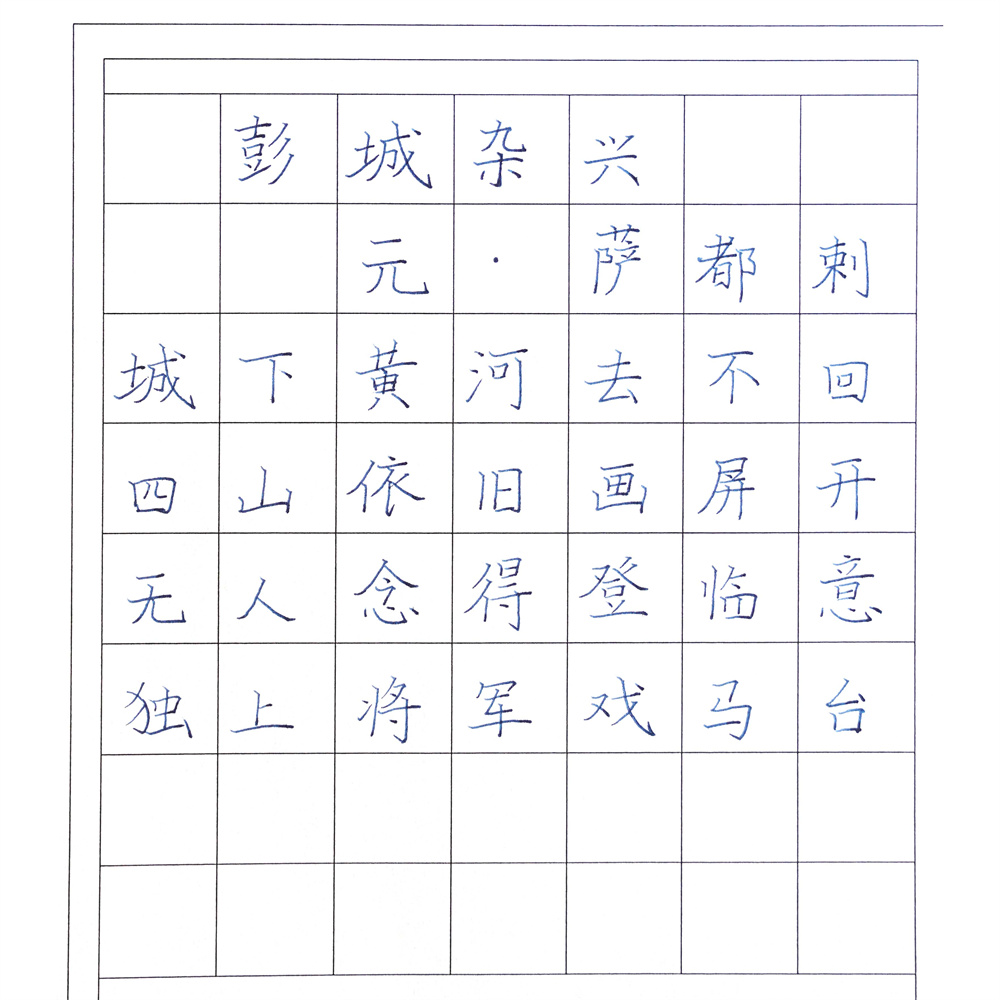 彭城杂兴
元·萨都剌
城下黄河去不回
四山依旧画屏开
无人念得登临意
独上将军戏马台